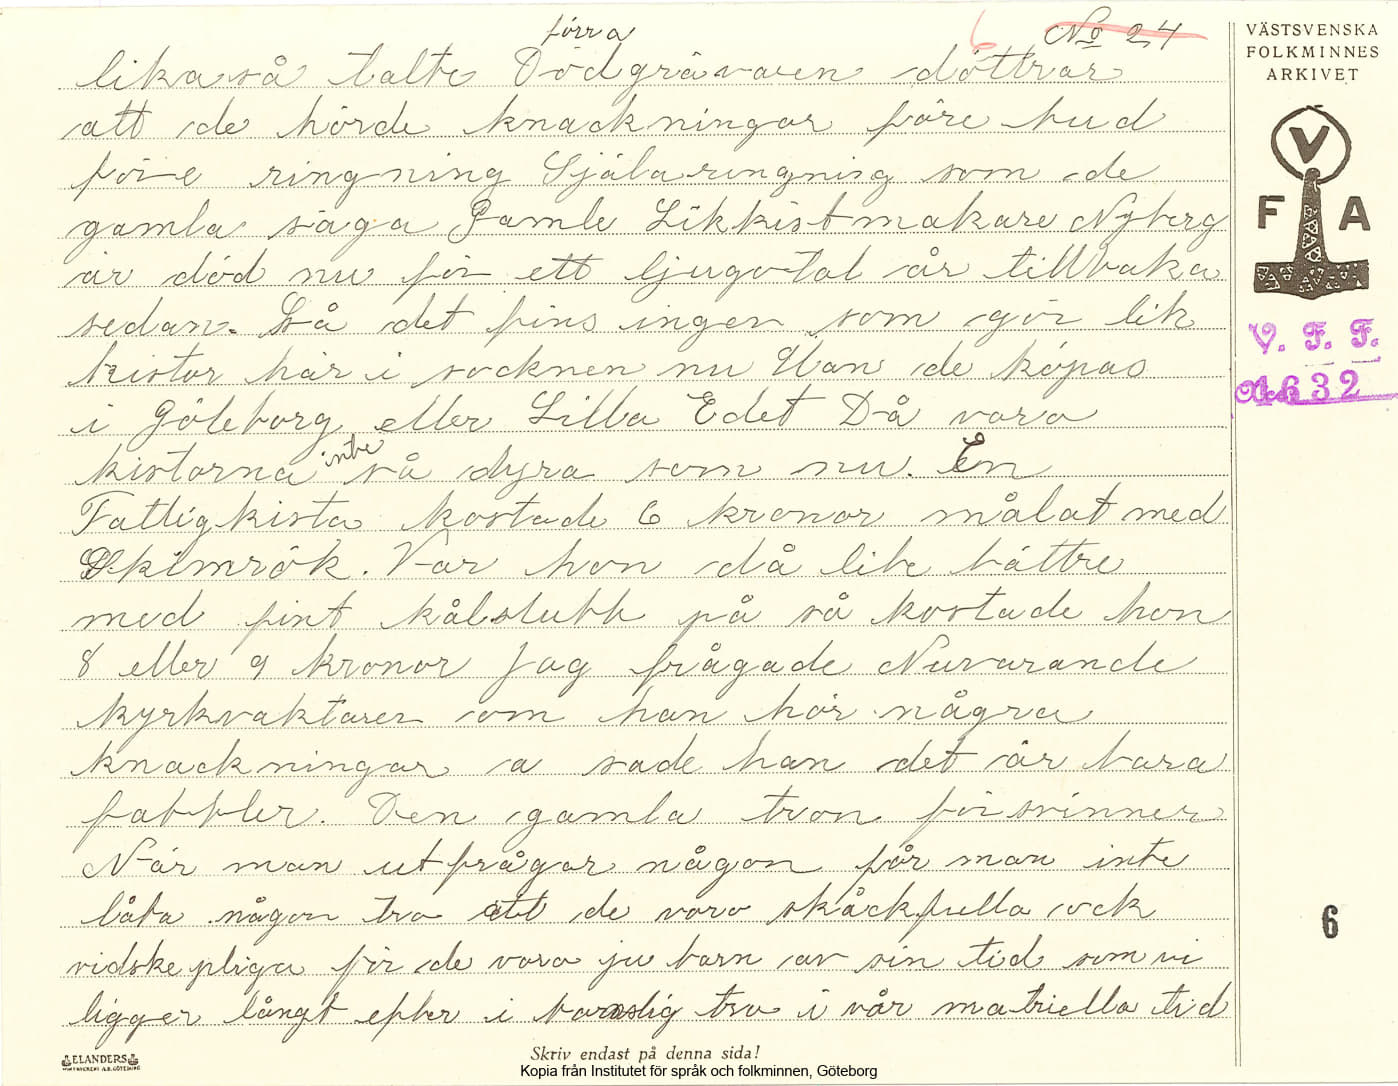 förra
6 No 24
likaså talte Dödgrävaren döttrar
att de hörde knackningar före bud
före ringning Själaringning som de
gamla säga Gamle Likkistmakare Nyberg
är död nu för ett tjugotal år tillbaka
sedan. Så det fins ingen som gör lik
kistor här i socknen nu Utan de köpas
i Göteborg eller Lilla Edet Då voro
kistorna inte så dyra som nu. En
Fattigkista kostade 6 kronor målat med
Skimrök. Var hon då lite bättre
med fint kålslukk på så kostade hon
8 eller 9 kronor Jag frågade Nuvarande
kyrkvaktaren om han hör några
knackningar a sade han det är bara
fabbler. Den gamla tron försvinner
När man utfrågar någon får man inte
låta någon tro att de voro skåckfulla ock
vidskepliga för de voro ju barn av sin tid som vi
ligger långt efter i barnslig tro i vår matriella tid
VÄSTSVENSKA
FOLKMINNES
ARKIVET
V
F A
V. F. F.
1632
6
ELANDERS
Skriv endast på denna sida!
Kopia från Institutet för språk och folkminnen, Göteborg